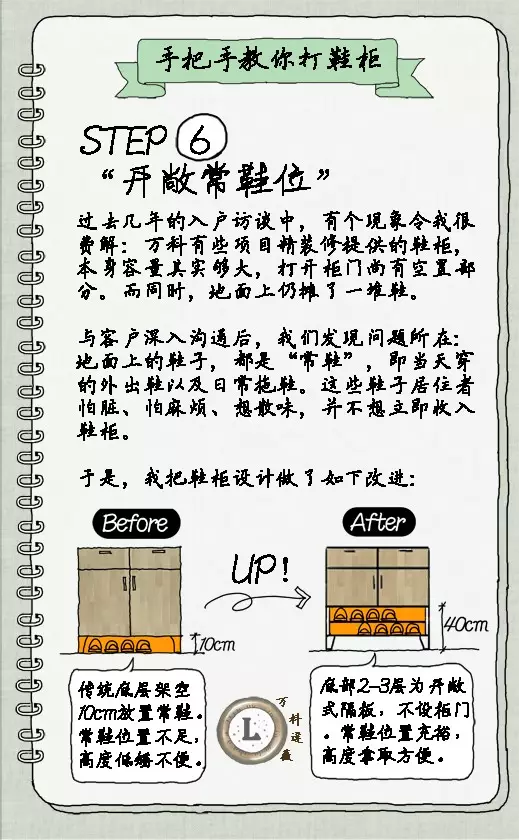 手把手教你打鞋柜
STEP 6
“开敞常鞋位”
过去几年的入户访谈中，有个现象令我很
费解：万科有些项目精装修提供的鞋柜，
本身容量其实够大，打开柜门尚有空置部
分。而同时，地面上仍摊了一堆鞋。
与客户深入沟通后，我们发现问题所在：
地面上的鞋子，都是“常鞋”，即当天穿
的外出鞋以及日常拖鞋。这些鞋子居住者
怕脏、怕麻烦、想散味，并不想立即收入
鞋柜。
于是，我把鞋柜设计做了如下改进：
Before
After
UP!
10cm
40cm
传统底层架空
10cm放置常鞋。
常鞋位置不足，
高度低矮不便。
底部2-3层为开敞
式隔板，不设柜门
。常鞋位置充裕，
高度拿取方便。
L
万科逯薇